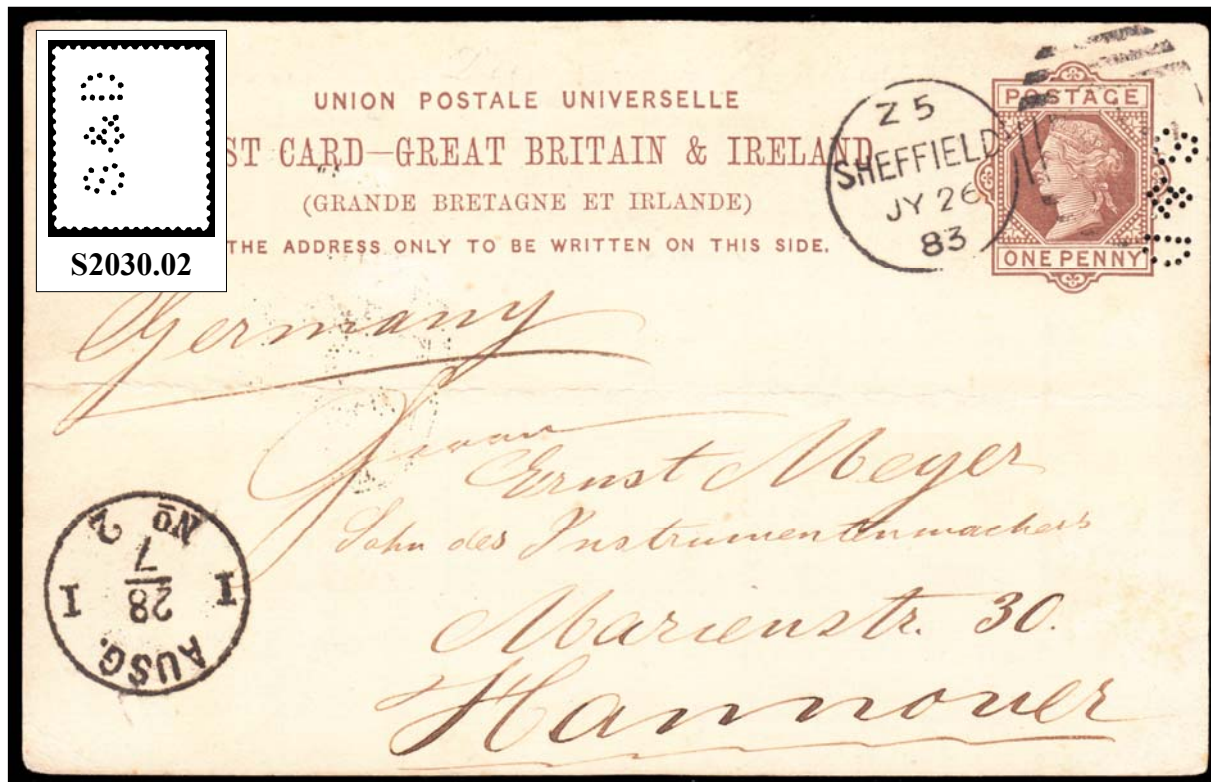 S&D
S2030.02
UNION POSTALE UNIVERSELLE
ST CARD—GREAT BRITAIN & IRELAND
(GRANDE BRETAGNE ET IRLANDE)
THE ADDRESS ONLY TO BE WRITTEN ON THIS SIDE.
Z 5
SHEFFIELD
JY 26
83
POSTAGE
ONE PENNY
S&D
Germany
Herrn
Ernst Meyer
Sohn des Instrumentenmachers
Marienstr. 30.
Hannover
AUSG.
28
7
I I
No 2